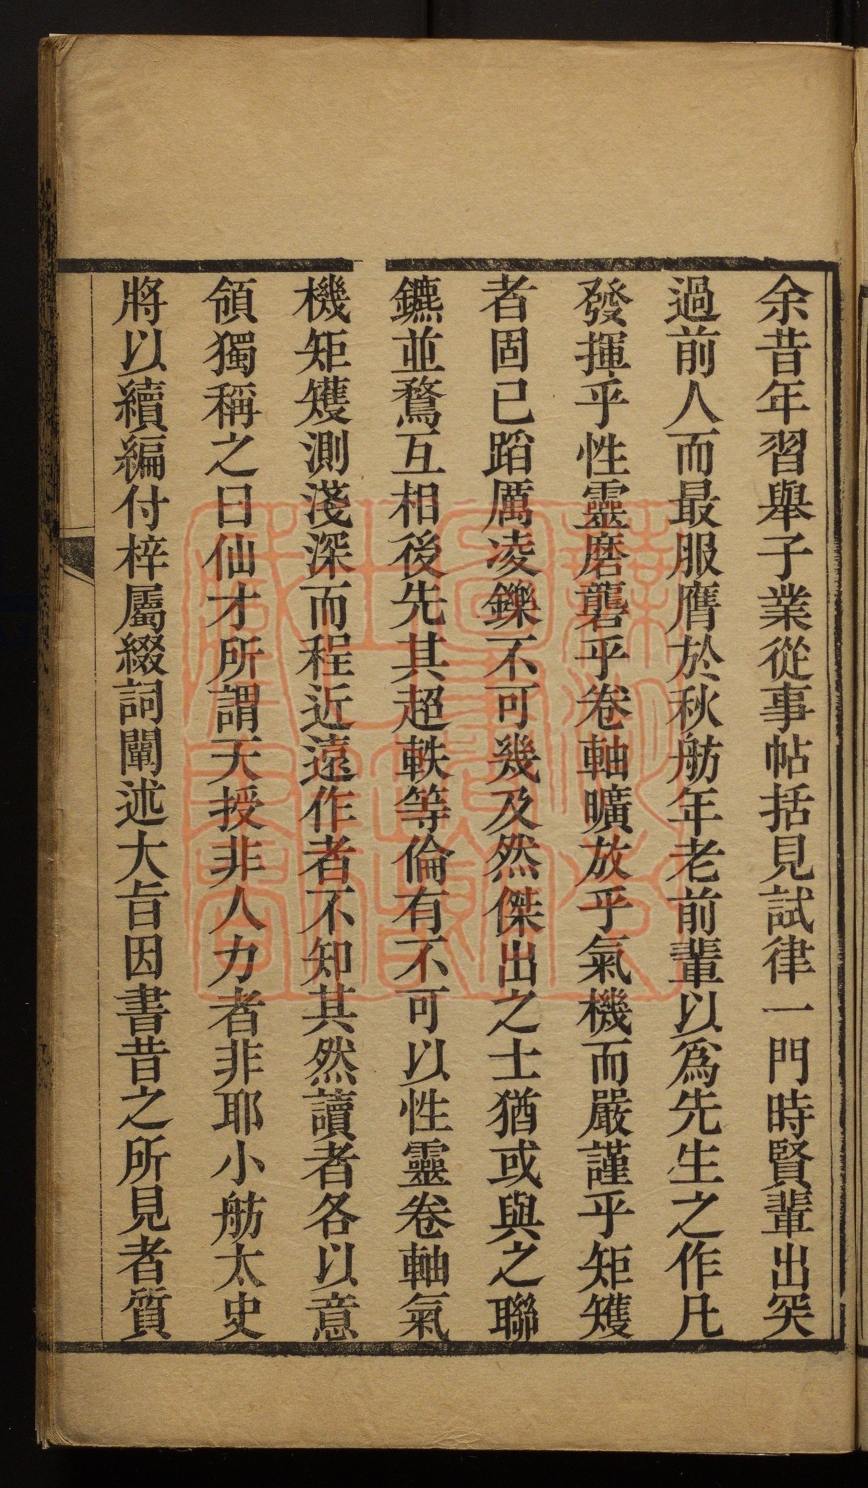 余昔年習舉子業從事帖括見試律一門時賢輩出突
過前人而最服膺於秋舫年老前輩以爲先生之作凡
發揮乎性靈磨礱乎卷軸曠放乎氣機而嚴謹乎矩矱
者固已蹈厲凌鑠不可幾及然傑出之士猶或與之聯
鑣並鶩互相後先其超軼等倫有不可以性靈卷軸氣
機矩矱測淺深而程近遠作者不知其然讀者各以意
領獨稱之曰仙才所謂天授非人力者非耶小舫太史
將以續編付梓屬綴詞闡述大旨因書昔之所見者質